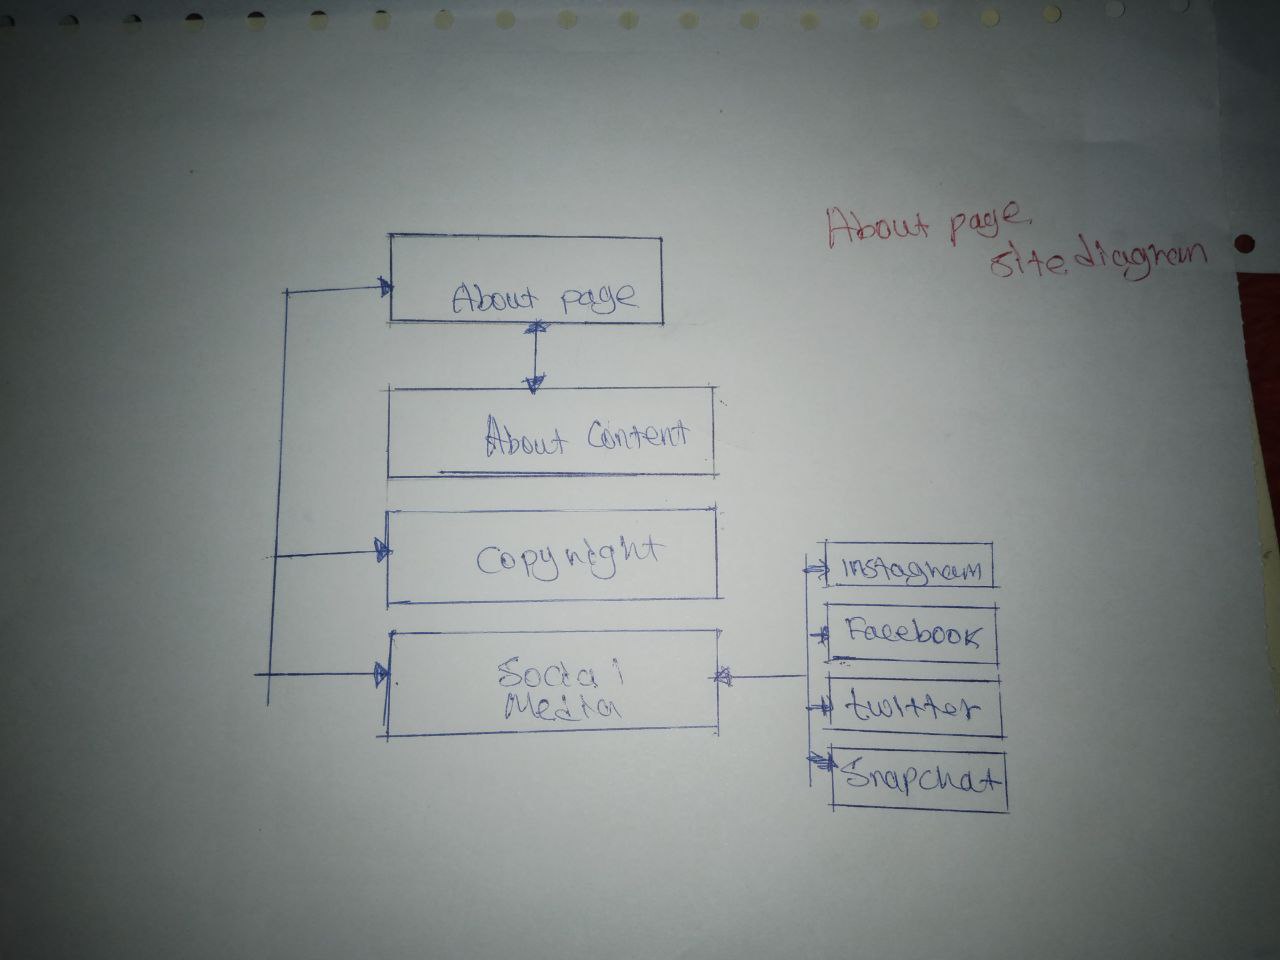 About page
site diagram
About page
About Content
Copyright
Social
Media
instagram
Facebook
twitter
Snapchat